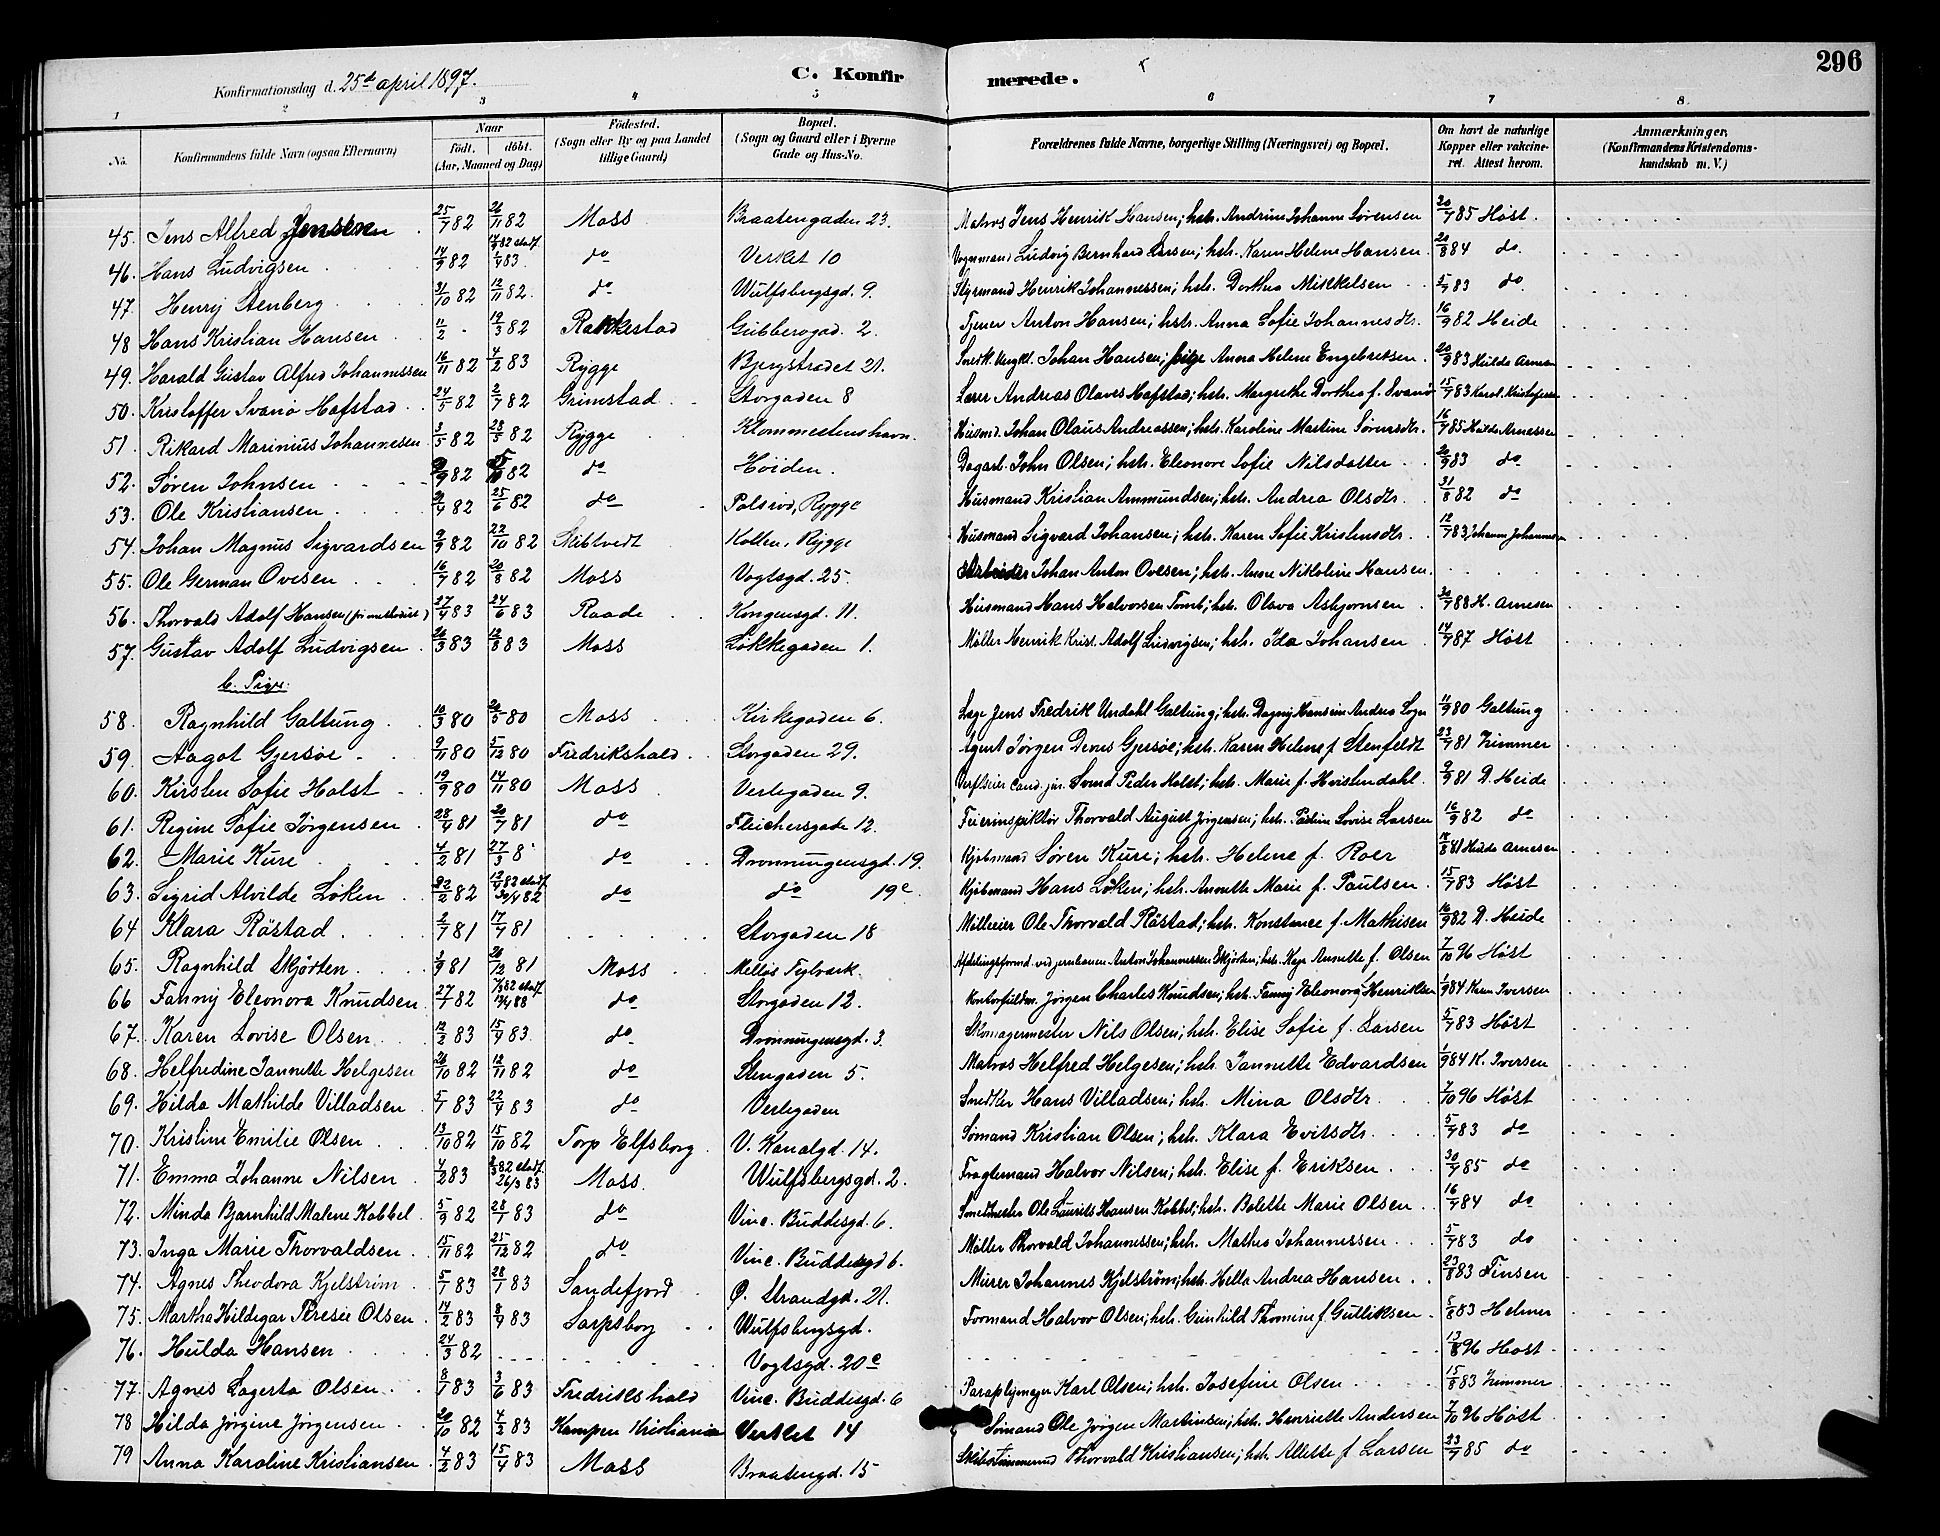 296
Konfirmationsdag d. 25de april 1897.
C. Konfirmerede.
1 2 3 4 5 6 7 8
No. Konfirmandens fulde Navn (ogsaa Efternavn) Naar Födt. döbt. (Aar, Maaned og Dag) Födested. (Sogn eller By og paa Landet tillige Gaard) Bopæl. (Sogn og Gaard eller i Byerne Gade og Hus-No. Forældrenes fulde Navne, borgerlige Stilling (Næringsvei) og Bopæl. Om havt de naturlige Kopper eller vaccineret. Attest herom. Anmærkninger, (Konfirmandens Kristendomskundskab m. V.)
45. Jens Alfred Jensen 25/7 82 26/11 82 Moss Braatengaden 23. Matros Jens Henrik Hansen; hstr. Andrine Johanne Sørensen 20/7 85 Høst
46. Hans Ludvigsen 14/9 82 1/4 83 do Verket 10 Vognmand Ludvig Bernhard Larsen; hstr. Karen Helene Hansen 20/8 84 do
47. Henry Stenberg 31/10 82 12/11 82 do Wulfsbergsgd. 9. Styrmand Henrik Johannessen; hstr. Dorthea Mikkelsen 5/7 83 do
48 Hans Kristian Hansen 11/2 19/3 82 Rakkestad Gubberogad. 2. Tjener Anton Hansen; hstr. Anna Sofie Johannesdtr. 16/9 82 Heide
49. Harald Gustav Alfred Johannessen 16/11 82 4/2 83 Rygge Bjergstrædet 21. Snedk. Johan Hansen; pige Anna Helene Engebretsen 20/9 83 Hulda Arnesen
50. Kristoffer Svanø Hafstad 24/5 82 2/7 82 Grimstad Storgaden 8 Lærer Andreas Olaves Hafstad; hstr. Margrethe Dorthea f. Svanø 15/7 83 Karol. Kristofersen
51. Rikard Marinius Johannesen 3/5 82 28/5 82 Rygge Klommestenshavn. Husmd. Johan Olaus Andreassen; hstr. Karoline Martine Sørensdtr. 16/7 85 Hulda Arnessen
52. Søren Johnsen 9/9 82 82 do Høiden. Dagarb. John Olsen; hstr. Eleonore Sofie Nilsdatter 20/9 83 do
53. Ole Kristiansen 82 25/6 82 do Rygge Husmand Kristian Ammundsen; hstr. Andrea Olsdtr. 31/8 82 do
54. Johan Magnus Sigvardsen 9/9 82 22/10 82 Skibtvedt Kollen, Rygge Husmand Sigvard Johansen; hstr. Karen Sofie Kristensdtr. 12/7 83 Johanne
55. Ole German Ovesen 16/7 82 20/8 82 Moss Vogtsgd. 25. Arbeider Johan Anton Ovesen; hstr. Anne Nikoline Hansen.
56. Thorvald Adolf Hansen (før methodist) 27/4 83 24/6 83 Raade Kongensgd. 11. Husmand Hans Halvorsen Tomb; hstr. Olava Asbjornsen 88 H. Arnesen
57. Gustav Adolf Ludvigsen 26/3 83 12/8 83 Moss Løkkegaden 1. Møller Henrik Krist. Adolf Ludvigsen; hstr. Ida Johansen 14/7 87 Høst
b. Piger.
58. Ragnhild Galtung 10/3 80 20/5 80 Moss Kirkegaden 6. Læge Jens Fredrik Undahl Galtung; hstr. Dagny Hansine Andrea 11/9 80 Galtung
59. Aagot Gjersøe 9/11 80 5/12 80 Fredrikshald Storgaden 29. Agent Jørgen Devus Gjersøe; hstr. Karen Helene f Stenfeldt 23/7 81 Zimmer
60. Kirsten Sofie Holst 19/9 80 14/11 80 Moss Verlegaden 9. cand. jur. Svend Peder Holst; hstr. Marie f. Hvistendahl 9/9 81 D. Heide
61. Regine Sofie Jørgensen 28/4 81 20/7 81 do Fleichersgade 12. Feierinspektør Thorvald August Jørgensen; hstr. Pauline Lovise Larsen 16/9 82 do
62. Marie Kure 4/2 81 27/3 8 do Dronningensgd. 19. Kjøbmand Søren Kure; hstr. Helene f. Roer 18/8 81 Hulda Arnesen
63. Sigrid Alvilde Løken 22/2 82 30/4 82 do do 19c Kjøbmand Hans Løken; hstr. Annette Marie f. Paulsen 15/7 83 Høst
64 Klara Röstad 2/7 81 17/7 81 Storgaden 18 Mølleeier Ole Thorvald Röstad; hstr. Konstance f. Mathisen 16/9 82 D. Heide
65. Ragnhild Skjørten 2/9 81 26/12 81 Moss Mellis Teglværk. Afdelingsformd. ved jernbanen Anton Johannessen Skjørten; hstr. Annette f. Olsen 7/10 96 Høst
66 Fanny Eleonora Knudsen 27/1 82 do Storgaden 12. Kontorfuldm. Jørgen Charles Knudsen; hstr. Fanny Eleonora Henriksen 1/9 84 Iversen
67. Karen Lovise Olsen 12/2 83 15/4 83 do Dronningensgd. 3. Skomagermester Nils Olsen; hstr. Elise Sofie f. Larsen 5/7 83 Høst
68. Helfredine Jannette Helgesen 26/10 82 12/11 82 do Stengaden 5. Matros Helfred Helgesen; hstr. Jannette Edvardsen 1/9 84 K. Iversen
69. Hilda Mathilde Villadsen 5/1 83 22/4 83 do Verlegaden Snedker Hans Villadsen; hstr. Mina Olsdtr 7/10 96 Høst
70. Kristine Emilie Olsen 13/10 82 15/10 82 Torp Elfsborg V. Kanalgd. 14. Sømand Kristian Olsen; hstr. Klara Evitsdtr. 5/7 83 do
71. Emma Johanne Nilsen 4/2 83 26/3 83 Moss Wulfsbergsgd. 2. Fragtemand Halvor Nilsen; hstr. Elise f. Eriksen 30/7 85 do
72. Minda Bjarnhild Malene Kabbel 5/9 82 28/1 83 do Vinc. Buddesgd. 6. Smedmester Ole Laurits Hansen Kabbel; hstr. Bolette Marie Olsen 16/7 84 do
73. Inga Marie Thorvaldsen 15/11 82 25/12 82 do Vinc. Buddesgd 6. Møller Thorvald Johannessen; hstr. Mathea Johannessen 5/7 83 do
74. Agnes Theodora Kjelstrøm 5/1 83 28/1 83 Sandefjord Ø. Strandgd. 21. Murer Johannes Kjelstrøm; hstr. Hella Andrea Hansen 23/8 83 Finsen
75. Martha Hildegar Terese Olsen 14/2 83 8/9 83 Sarpsborg Wulfsbergsgd. Formand Halvor Olsen; hstr. Gunhild Thomine f. Gulliksen 5/8 83 Helmer
76. Hulda Hansen 24/3 82 Vogtsgd. 20c 13/8 96 Høst
77. Agnes Lagerta Olsen 8/1 83 3/6 83 Fredrikshald Vinc. Buddesgd. 6 Paraplymager Karl Olsen; hstr. Josefine Olsen 15/8 83 Zimmer
78 Hilda Jørgine Jørgensen 20/10 82 4/2 83 Kampen Kristiania Verket 14 Sømand Ole Jørgen Martinsen; hstr. Henriette Andersen 7/10 96 Høst
79 Anna Karoline Kristiansen 4/2 83 15/4 83 Moss Braatengd. 15 Skibstømmermd Thorvald Kristiansen; hstr. Allette f. Larsen 23/7 85 do